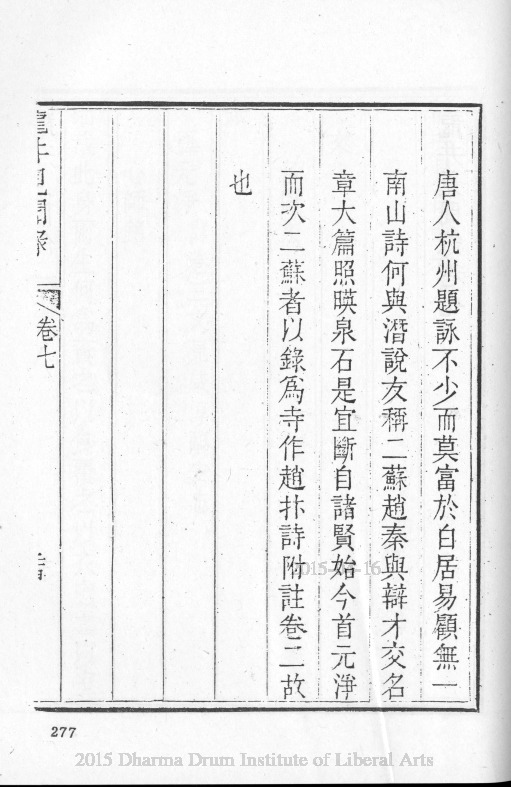 唐人杭州題詠不少而莫富於白居易顧無一
南山詩何與潛說友稱二蘇趙秦與辯才交名
章大篇照暎泉石是宜斷自諸賢始今首元淨
而次二蘇者以錄爲寺作趙抃詩附註卷二故
也
龍井見聞錄
卷七
277
2015-04-16
2015 Dharma Drum Institute of Liberal Arts